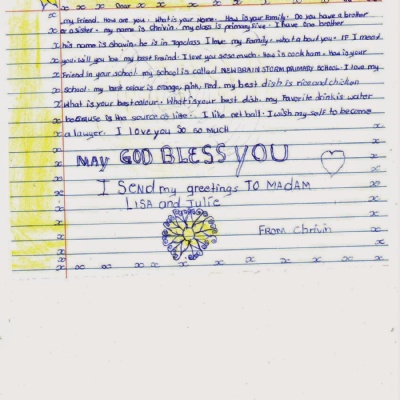 Dear
my friend. How are you. What is your Name. How is your family. Do you have a brother
or a sister. my name is Chrivin. my class is primary five. I have one brother
his name is Shavin. he is in Topclass I love my family. what about you. IF I meet
you. will you be my best friend. I love you so so much. How is cookham. How is your
Friend in your school. my school is called NEW BRAIN STORM PRIMARY SCHOOL. I love my
school. my best colour is orange, pink, red. my best dish is rice and chicken
What is your best colour. What is your best dish. my favorite drink is water
because is the source of life. I like netball. I wish my self to become
a lawyer. I love you so so much
MAY GOD BLESS YOU
I send my greetings TO MADAM
LISA and Julie
FROM Chrivin